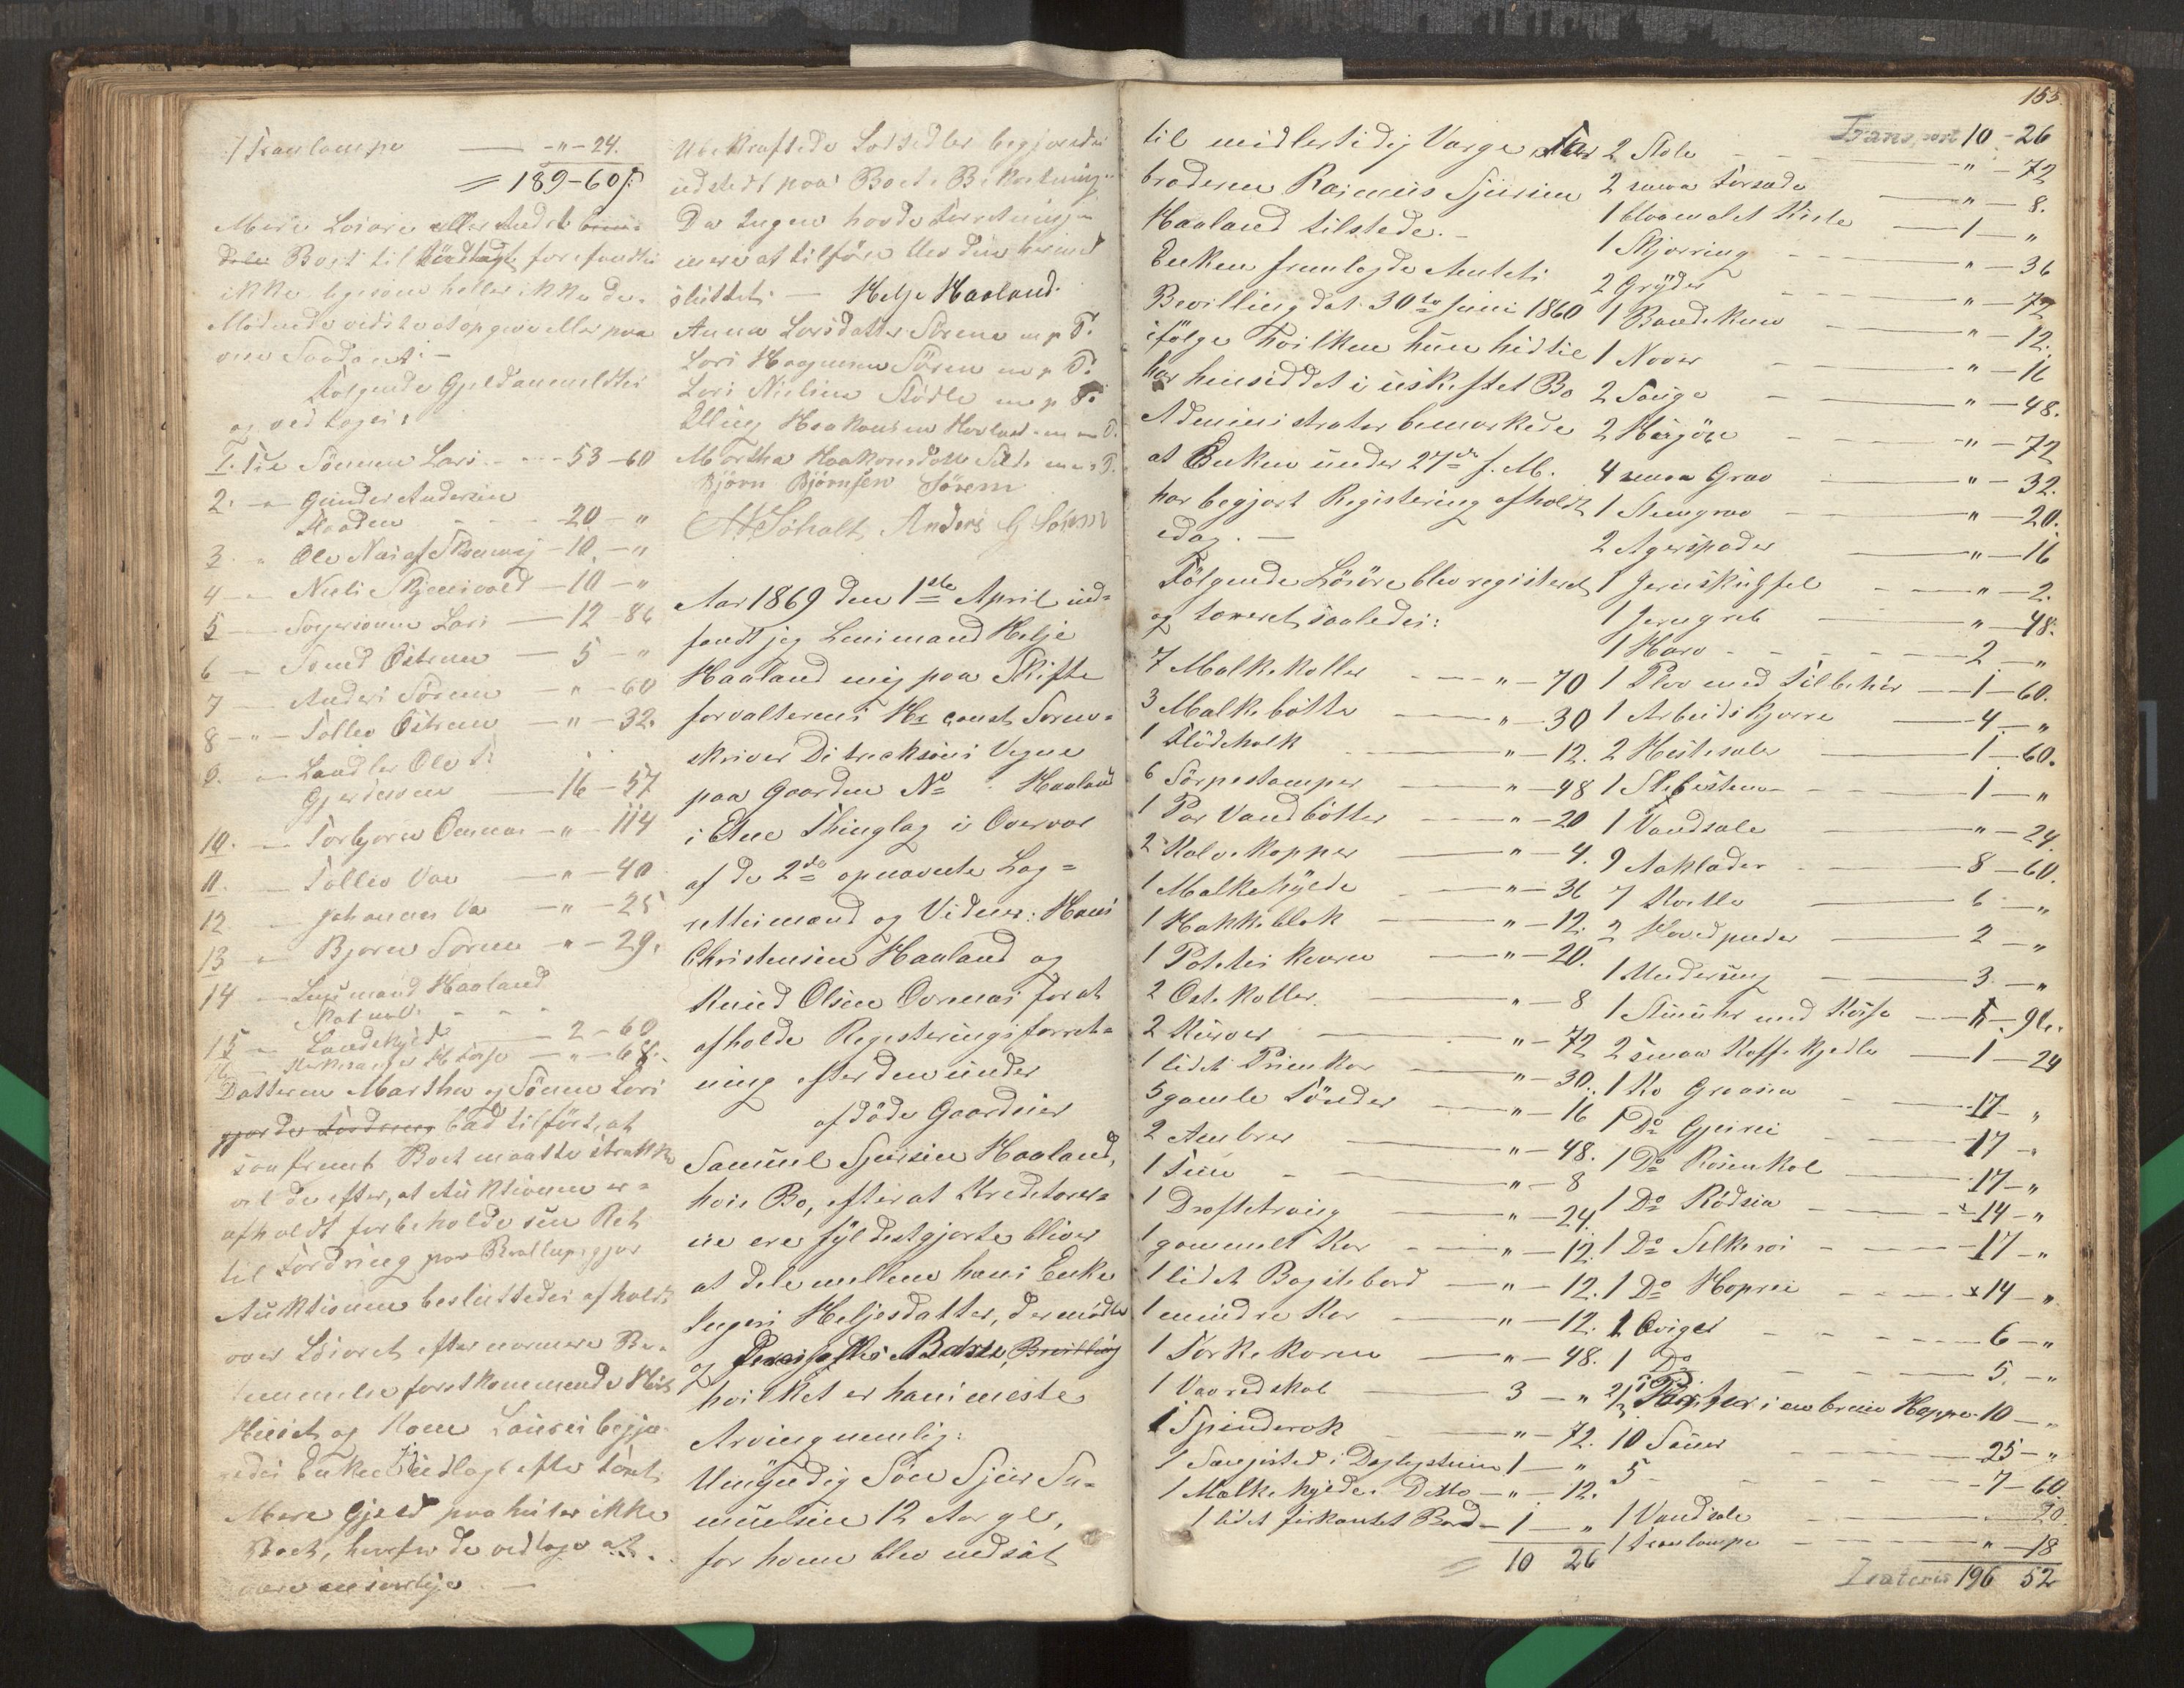 1 Tranlampe — " - 24.
= 189 - 60 ß
Mere Løsøre eller Andet
Boet til Indtægt forefandtes
ikke ligesom heller ikke de
Mødende vidste at opgive eller paa
vise Saadant. -
Følgende Gjeld anmeldtes
og vedtoges:
1. Til Sønnen Lars - - 53 - 60
2. - " Gunder Andersen
Flaaden - - - 20 - "
3. " Ole Næs af Skaanevig - 10 - "
4 - " Niels Skjensvold - 10 - "
5 - Svigersønnen Lars - 12 - 86
6 - Svend Østrem - 5 - "
7 - Anders Sørem - " - 60
8 - " - Tollev Østrem - " - 32.
9. - Landhdler Ole T.
Gjerdesven - 16 - 57
10. - Torbjørn Ormnæs - " - 114
11. - Tollev Vae - " - 40
12 - Johannes Va - " - 25
13 - Bjørn Sørem - " - 29.
14 - Lensmand Haaland
- - -
15 - Landskyld - 2 - 60
- " - 68.
Datteren Martha og Sønnen Lars
gjorde Fordring bad tilført, at
saafremt Boet maatte strække
til derefter, at Auktionen er
afholdt forbeholde sin Ret
til Fordring paa Bryllupsgjør
Auktionen besluttedes afholdt
over Løsøret efter nærmere Be-
rammelse førstkommende Høst
Huset og Koen Laurei begjæ-
redes Enken udlagt efter Taxt.
Mere Gjeld paahviler ikke
Boet, hvorfor de vedtoge at
være ansvarlige. -
Ubekræftede Lodsedler begjæredes
udstedt paa Boets Bekostning.
Da Ingen havde Forretningen
mere at tilføre blev den hermed
sluttet. - Helje Haaland.
Anna Larsdatter Sørem m p P.
Lars Haagensen Sørem m p P.
Lars Nielsen Stødle m p P.
Elling Haakonsen Haaland m p P.
Martha Haakonsdatter m p P.
Bjørn Bjørnsen Sørem
Søholt, Anders G Sørem
Aar 1869 den 1ste April ind-
fandt jeg Lensmand Helje
Haaland mig paa Skifte
forvalterens Hr const. Soren-
skriver Ditrichsons Vegne
paa Gaarden No Haaland
i Etne Thinglag i Overvær
af de 2de opnævnte Lag-
rettesmænd og Vidner: Hans
Christensen Haaland og
Knud Olsen Ormnæs for at
afholde Registeringsforret-
ning efter den under
afdøde Gaardeier
Samuel Sjursen Haaland,
hvis Bo, efterat Kreditorer-
ne ere fyldestgjorte bliver
at dele mellem hans Enke
Ingeri Heljesdatter, der mødte
og Bevilling
hvilket er hans eneste
Arving nemlig:
Umyndig Søn Sjur Sa-
muelsen 12 Aar gl,
for hvem blev udsat
155.
til midlertidig Værge Far
broderen Rasmus Sjursen
Haaland tilstede. -
Enken fremlagde Amtets
Bevilling dat. 30te Juni 1860
ifølge hvilken hun hidtil
har hensiddet i uskiftet Bo
Administrator bemærkede
at Enken under 27de f. M.
har begjært Registering afholdt
idag. -
Følgende Løsøre blev registeret
og taxeret saaledes:
7 Melkekoller - - - " - 70
3 Melkebøtte - " - 30
1 Flødeholk - " - 12.
6 Sørpestamper - " - 48
1 Par Vandbøtter - " - 20
2 Kalvekopper - " - 4.
1 Melkehylde - " - 36
1 Hakkeblok - " - 12.
1 Potteskvern - " - 20.
2 Ostekoller - " - 8
2 Kurver - " - 72
1 lidet Primkar - " - 30.
5 gamle Tønder - " - 16
2 Ambrer - " - 48.
1 Tine - " - 8
1 Drøftetraug - " - 24.
1 gammelt Kar - " - 12.
1 lidet Bagstebord - " - 12.
1 mindre Kar - " - 12.
1 Tørkekorn - " - 48.
1 Vævredskab - 3 - "
1 Spinderok - " - 72.
1 Sengested i Daglystuen 1 - "
1 Melkehylde Ditto - " - 12.
1 lidet firkantet Bord - 1 - "
= 10 26
Transport 10 - 26
2 Stole - " - 72
2 smaa Forsæde - " - 8.
1 blaamalet Kiste - 1 - "
1 Skjørring - " - 36
2 Gryder - " - 72
1 Bandekniv - " - 12.
1 Naver - " - 16
2 Sauge - " - 48.
2 Høgøxe - " - 72
4 smaa Grav - " - 32.
1 Stengrav - " - 20.
2 Agerspader - " - 16
1 Jernskuffel - " - 2.
1 Jerngreb - " - 48.
1 Harv - - - 2 - "
1 Plov med Tilbehør - 1 - 60.
1 Arbeidskjærre - 4 - "
2 Hestesaler - 1 - 60.
1 Slibesten - 1 - "
1 Vandsale - " - 24.
9 Aaklæder - 8 - 60.
7 Kvitle - 6 - "
2 Hovedpuder - 2 - "
1 Underseng - 3 - "
1 Stuuhr med Kasse - 96.
2 smaa Kaffekjedle - 1 - 24
1 Ko Graasia - 17 - "
1 Do Gjeirei - 17 - "
1 Do Rosenkol - 17 - "
1 Do Rødsia - x14 - "
1 Do Silkeroi - 17 - "
1 Do Hoprei - x14 - "
1 Qviger - 6 - "
1 Do - 5 - "
2/3 Parter i en brun Hoppe 10 - "
10 Sauer - 25 - "
5 - - 7 - 60.
1 Vandsale - 20.
1 Tranlampe - " - 18
Lateris 196 52